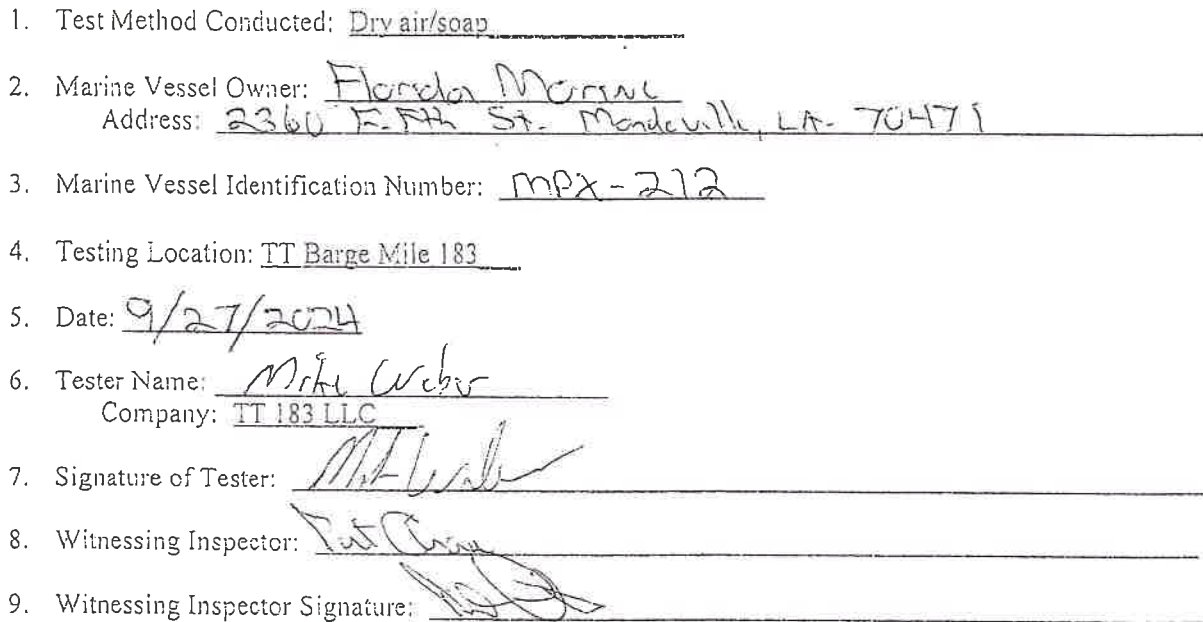 1. Test Method Conducted: Dry air/soap
2. Marine Vessel Owner: Florida Marine
Address: 2360 Fifth St. Mandeville, LA- 70471
3. Marine Vessel Identification Number: MPX-212
4. Testing Location: TT Barge Mile 183
5. Date: 9/27/2024
6. Tester Name: Mike Weber
Company: TT 183 LLC
7. Signature of Tester:
8. Witnessing Inspector: Pat
9. Witnessing Inspector Signature: